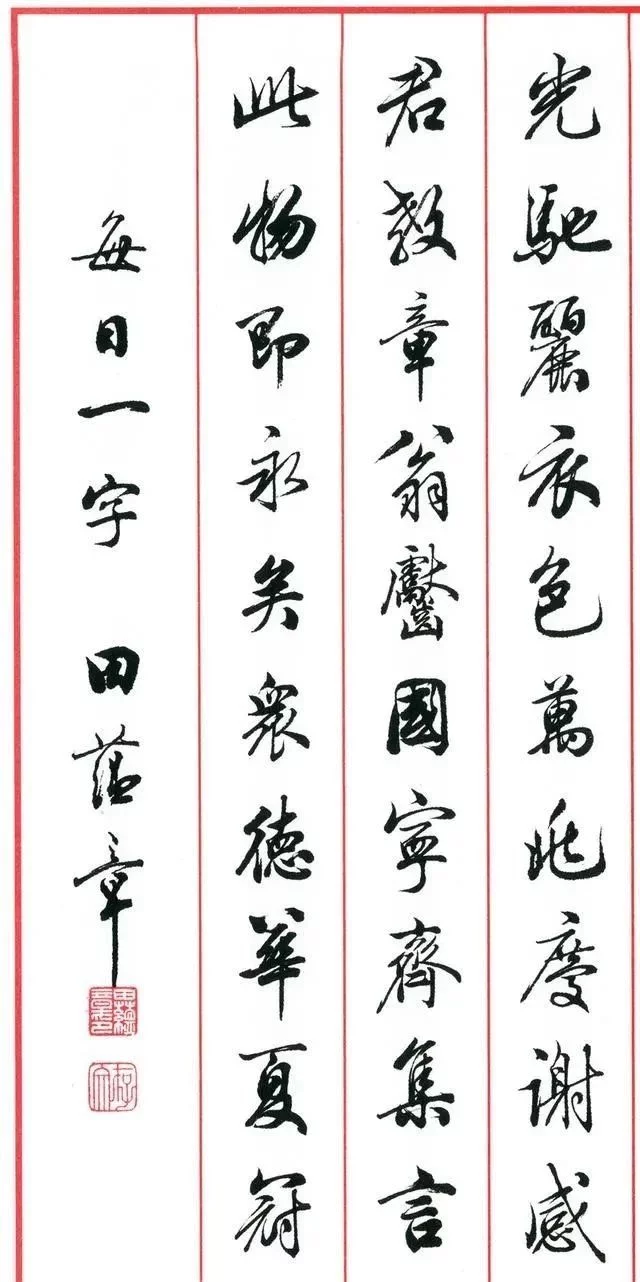 光馳麗衣色萬兆慶謝感
君教章翁齾國寧齊集言
此物即永矣衆德華夏冠
每日一字 田蘊章